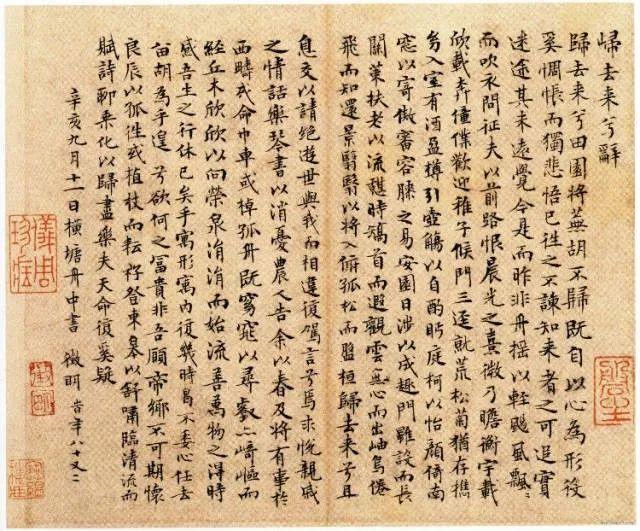 歸去来兮辭
歸去来兮田園將蕪胡不歸既自以心為形役
奚惆悵而獨悲悟已往之不諫知来者之可追實
迷途其未遠覺今是而昨非舟摇以輕颺風飄〻
而吹衣問征夫以前路恨晨光之熹微乃瞻衡宇載
欣載奔僮僕歡迎稚子候門三逕就荒松菊猶存携
幼入室有酒盈樽引壺觴以自酌眄庭柯以怡顏倚南
窓以寄傲審容膝之易安園日涉以成趣門雖設而長
關策扶老以流憩時矯首而遐觀雲無心而出岫鳥倦
飛而知還景翳翳以將入撫孤松而盤桓歸去来兮且
息交以請絕遊世與我而相違復駕言兮焉求悅親戚
之情話樂琴書以消憂農人告余以春及將有事於
西疇或命巾車或棹孤舟既窈窕以尋壑亦崎嶇而
經丘木欣欣以向榮泉涓涓而始流善萬物之得時
感吾生之行休已矣乎寓形寓内復幾時曷不委心任去
留胡為乎遑〻兮欲何之富貴非吾願帝鄉不可期懷
良辰以孤往或植杖而耘耔登東皋以舒嘯臨清流而
賦詩聊乘化以歸盡樂夫天命復奚疑
辛亥九月十一日橫塘舟中書 徵明 時年八十又二
儀周珍藏